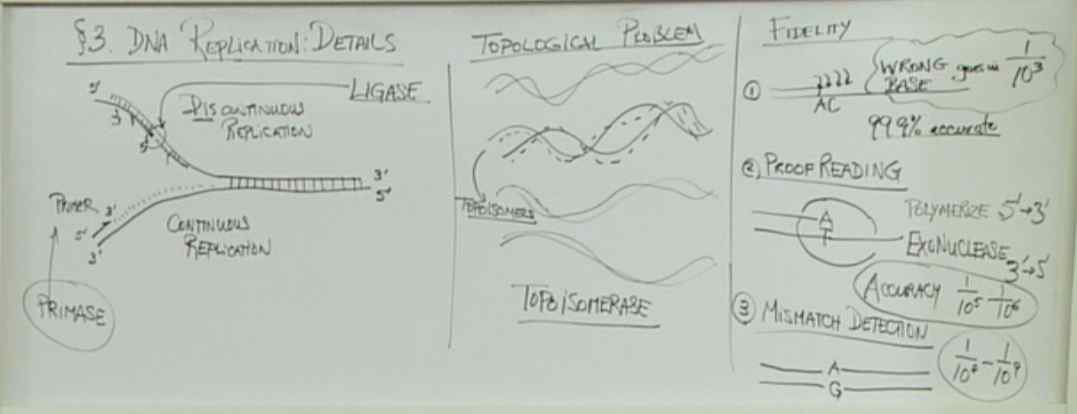 §3. DNA REPLICATION: DETAILS
5'
3'
5'
LIGASE
DISCONTINUOUS
REPLICATION
3'
5'
PRIMER
3'
5'
3'
CONTINUOUS
REPLICATION
PRIMASE
TOPOLOGICAL PROBLEM
TOPOISOMERS
TOPOISOMERASE
FIDELITY
① AC
WRONG BASE goes in 1/10³
99.9% accurate
② PROOFREADING
A
T
POLYMERIZE 5'→3'
EXONUCLEASE 3'→5'
ACCURACY 1/10⁵ - 1/10⁶
③ MISMATCH DETECTION
A
G
1/10⁸ - 1/10⁹